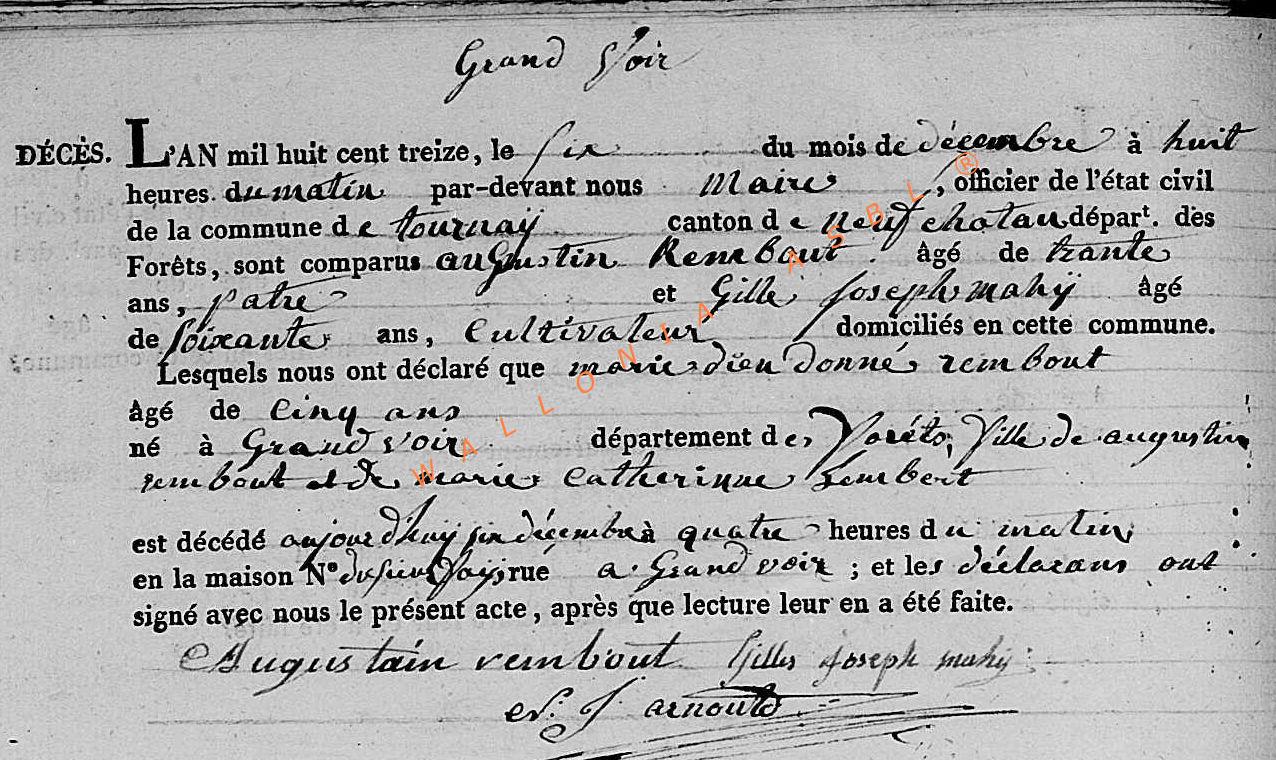 Grand Voir
DÉCÈS. L'AN mil huit cent treize, le six du mois de décembre à huit
heures du matin par-devant nous Maire, officier de l'état civil
de la commune de tournay canton de neufchatau départ. des
Forêts, sont comparus augustin Rembout âgé de trante
ans, patre et Gille joseph mahÿ âgé
de soixante ans, Cultivateur domiciliés en cette commune.
Lesquels nous ont déclaré que marie dieudonné rembout
âgé de cinq ans
né à Grand voir département des foréts, fille de augustin
rembout et de marie catherinne Lembert
est décédé aujourd'huy six décembre à quatre heures du matin
en la maison N° du sieur rue a Grand voir ; et les déclarans ont
signé avec nous le présent acte, après que lecture leur en a été faite.
Augustain rembout Gilles joseph mahy
arnould
WALLONIA ASBL ®